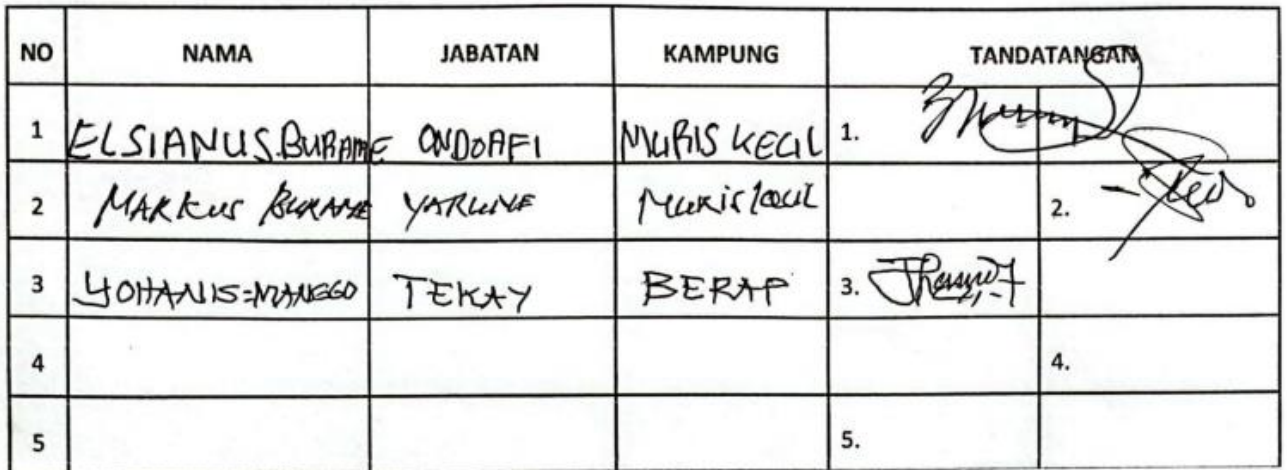 NO NAMA JABATAN KAMPUNG TANDATANGAN
1 ELSIANUS.BURAME ONDOAFI MURIS KECIL 1.
2 MARKUS BURAME YARUNE Muris Kecil 2.
3 YOHANIS=MANGGO TEKAY BERAP 3.
4 4.
5 5.